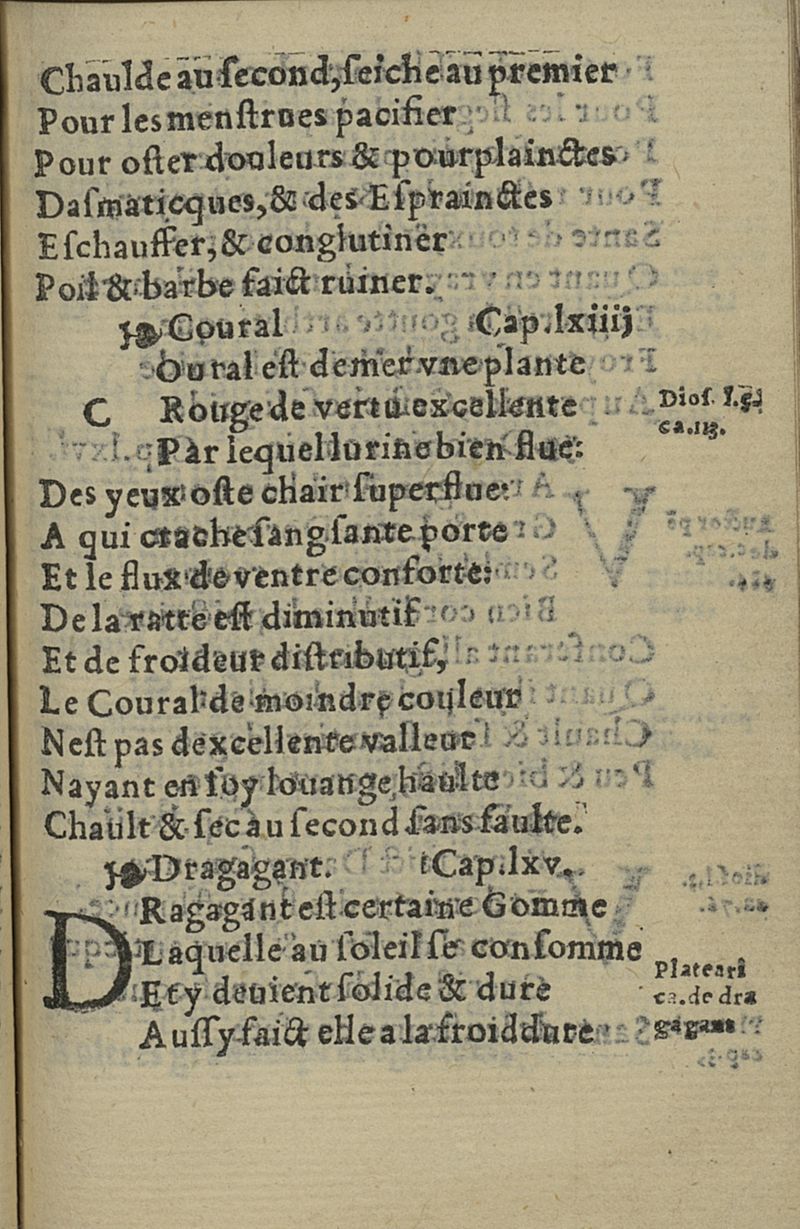 Chaulde au ſecond, ſeiche au premier
Pour les menſtrues pacifier
Pour oſter douleurs & pourplainctes
Daſmaticques, & des Eſprainctes
Eſchauffer, & conglutiner
Poil & barbe faict ruiner.
Coural Cap. lxiiij
Oural eſt de mer vne plante
C Rouge de vertu excellente
Dioſ. l.
ca.iij.
Par lequel lurine bien flue:
Des yeux oſte chair ſuperflue:
A qui crache ſang ſante porte
Et le flux de ventre conforte:
De la ratte eſt diminutif
Et de froideur diſtributif,
Le Coural de moindre couleur
Neſt pas dexcellente valleur
Nayant en ſoy louange haulte
Chault & ſec au ſecond ſans faulte.
Dragagant. Cap. lxv.
DRagagant eſt certaine Gomme
Laquelle au ſoleil ſe conſomme
Et y deuient ſolide & dure
Auſſy faict elle a la froiddure
Plateari
ca. de dra
gagant